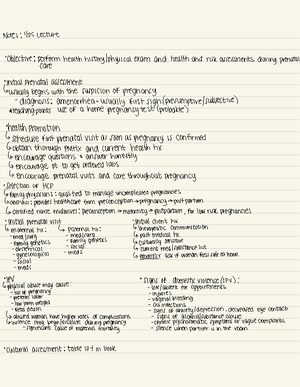 Notes: 1/25 Lecture
Objective: perform health history/physical exam and health and risk assessments during prenatal
care
Initial prenatal assessment
usually begins with the suspicion of pregnancy
- diagnosis: amenorrhea - usually first sign (presumptive/subjective)
teaching points use of a home pregnancy test (probable)
Health Promotion
schedule first prenatal visit as soon as pregnancy is confirmed
obtain thorough and current health hx
encourage questions & answer honestly
encourage pt to get ordered labs
encourage prenatal visits and care throughout pregnancy
Selection of HCP
family physicians: qualified to manage uncomplicated pregnancies
OB/GYN: provides healthcare from preconception → pregnancy → postpartum
certified nurse midwives: preconception → maternity → postpartum, for low risk pregnancies
Initial prenatal visit
maternal hx:
- med/surg
- family genetics
- obstetrical
- gynecological
- social
- meds
paternal hx:
- med/surg
- family genetics
- social
- meds
Initial client hx
therapeutic communication
past medical hx
culturally sensitive
current meds/substance list
ask if woman feels safe at home
IPV
physical abuse may cause:
- loss of pregnancy
- preterm labor
- low birth weight
- fetal death
abused women have higher rates of complications
violence may begin/escalate during pregnancy
- significant cause of maternal mortality
Signs of domestic violence (IPV):
- late/absent for appointments
- injuries
- vaginal bleeding
- signs of anxiety/depression, decreased eye contact
- signs of alcohol/substance abuse
- chronic psychosomatic symptoms or vague complaints
- silence when partner is in the room
Cultural assessment: table in book